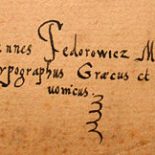 annes Fedorowicz M
ypographus Græcus et
uomicus.